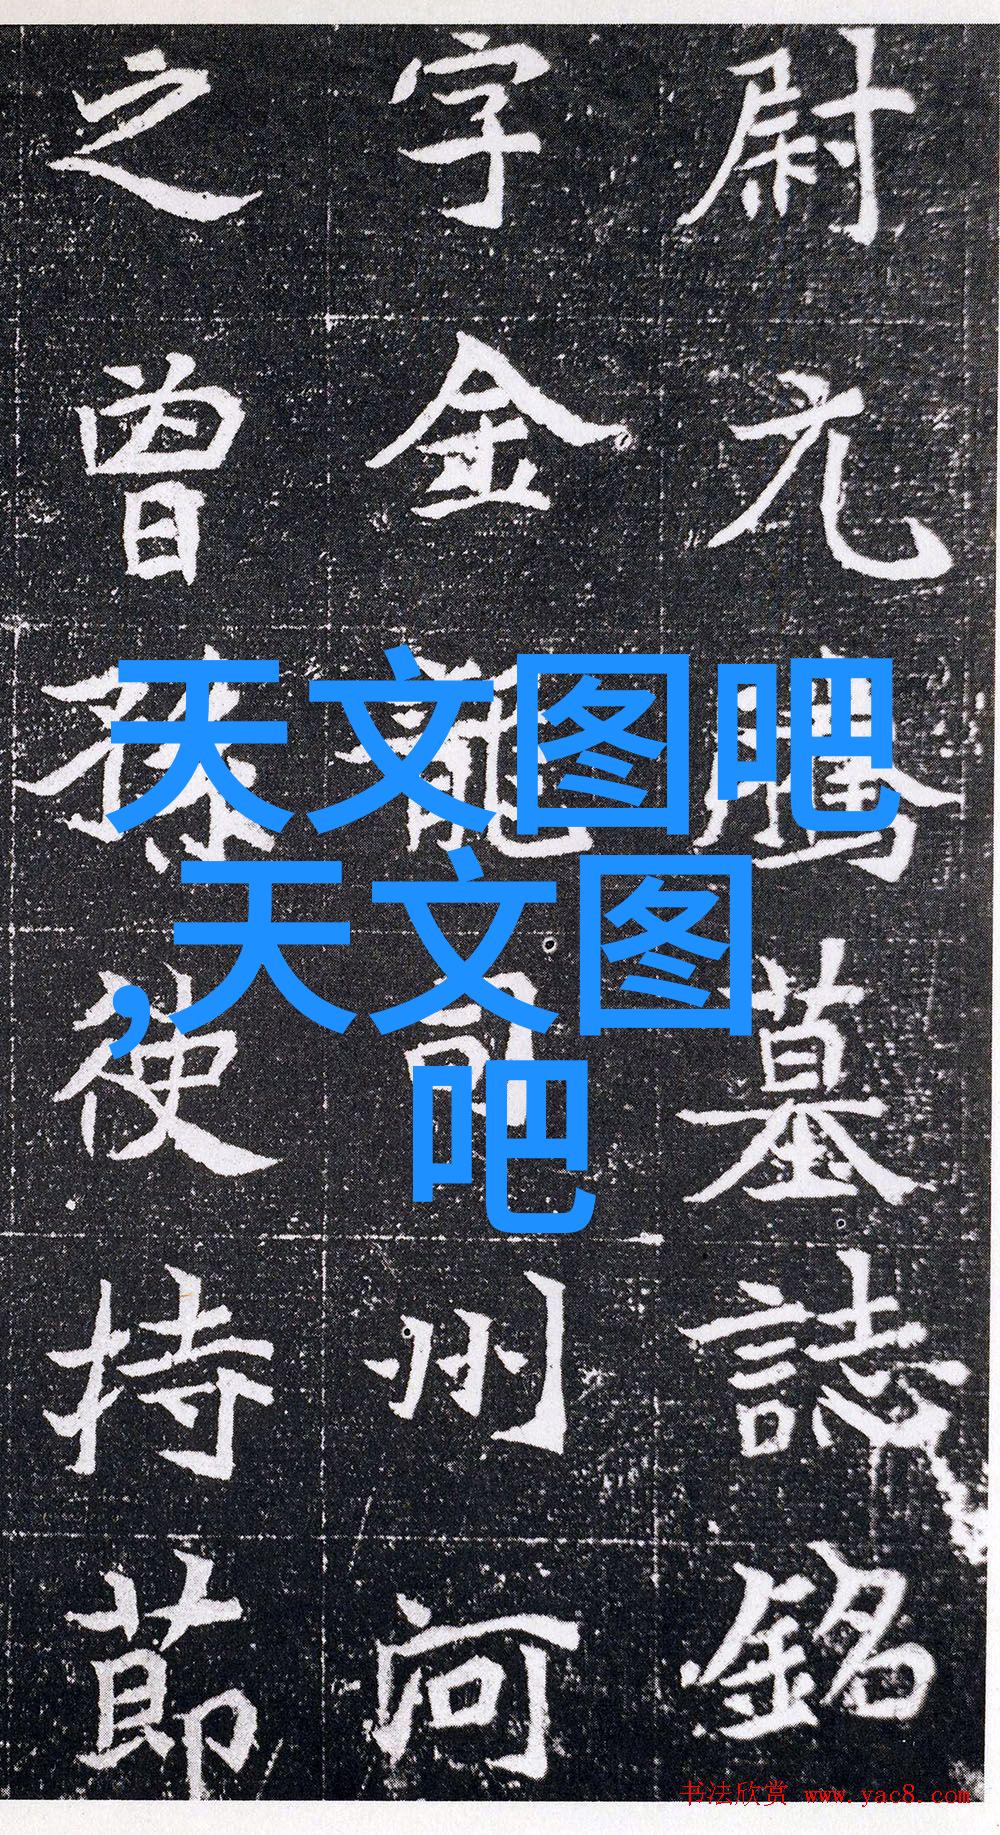 尉元騰墓誌銘
字金龍司州河
之曾孫使持節
天文图吧
,天文图
吧
书法欣赏 www.yac8.com